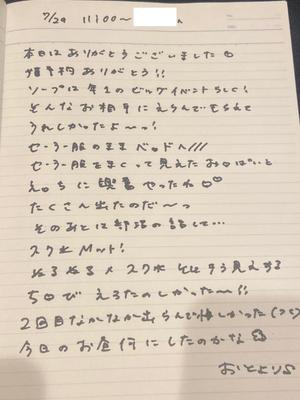 7/29 11:00〜 ん
本日はありがとうございました
予約ありがとう!!
ソープは年1のビッグイベントらしく!
そんなお相手にえらんでもらえて
うれしかったよ〜っ!
セーラー服のままベッドへ///
セーラー服をまくって見えたお○ぱいと
え○ちに やったね♡
たくさん出たのだ〜っ
そのあとに部活の話して…
スク水Mット!
ぬるぬる×スク水
ち○び えろたのしかった〜!!
2回目なかなか出 んで悔しかった
今日のお昼何にしたのかな